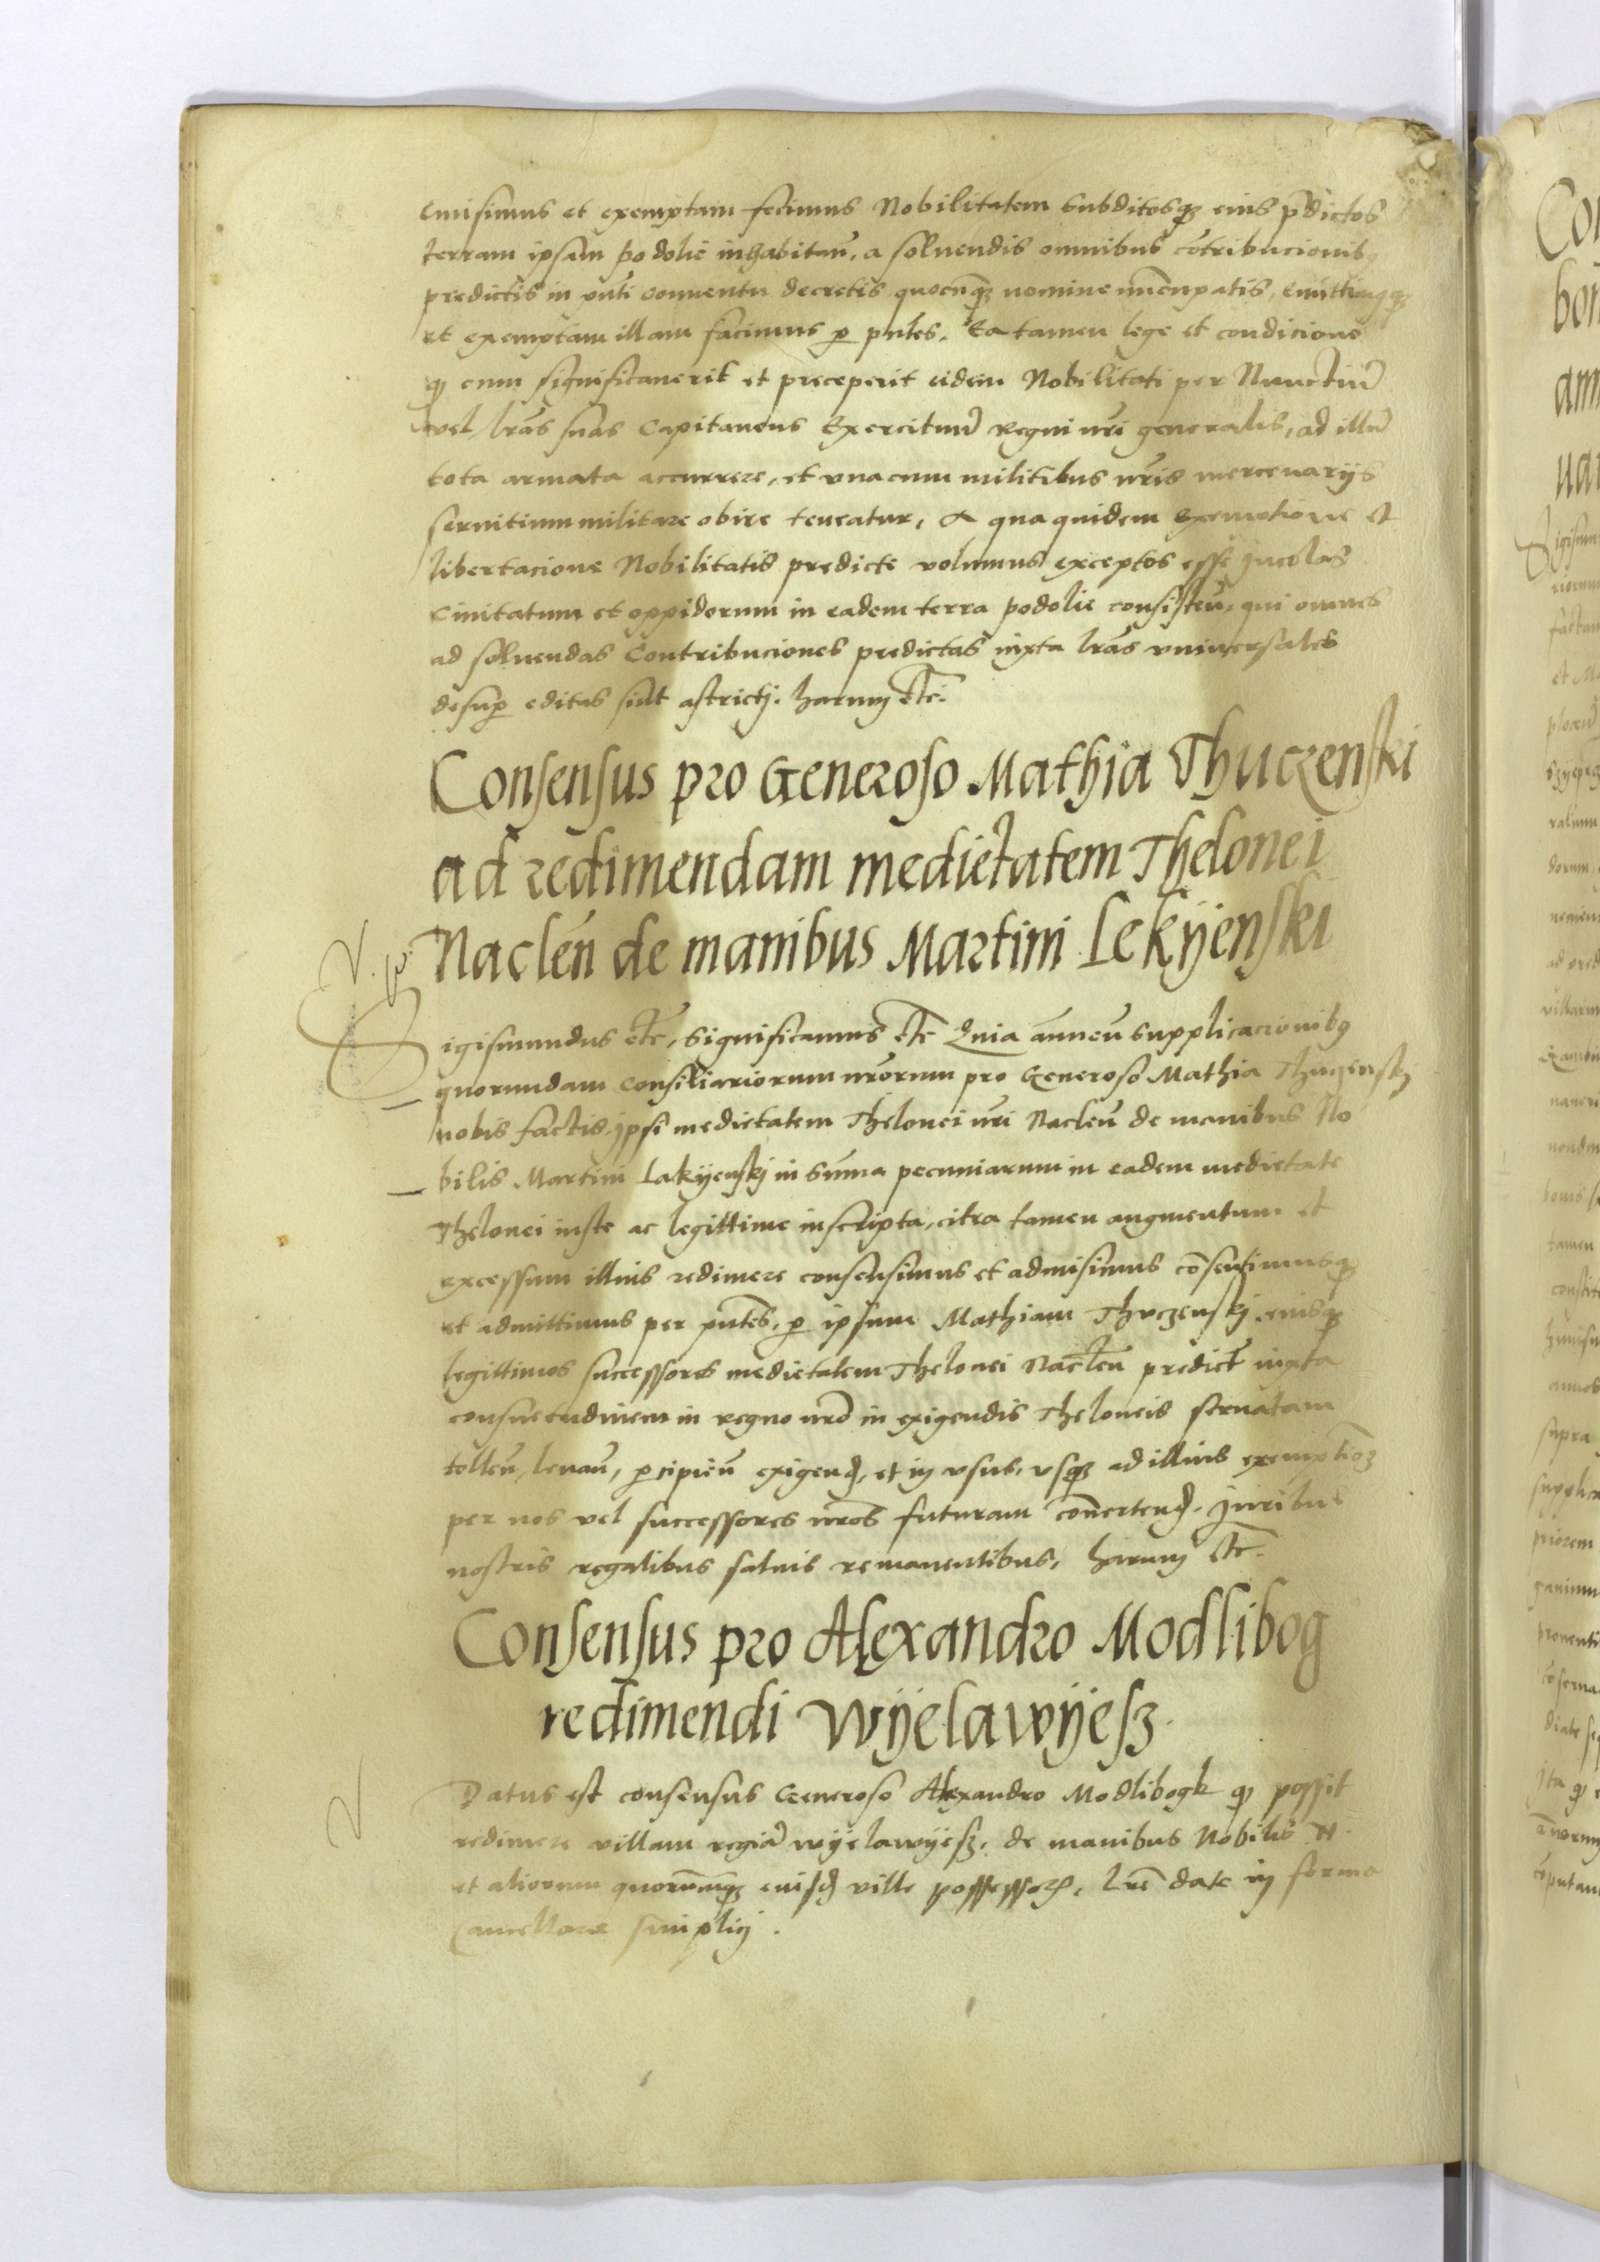 emisimus et exemptam fecimus Nobilitatem subditosq3 eius p̄dictos
terram ipsam podolie inhabitan̄, a soluendis omnibus cōtribucionib9
predictis in vnti conuentu decretis quocūq3 nomine nūcupatis, emittimusq3
et exemptam illam facimus p pn̄tes. Ea tamen lege et condicione
q̄ cum significauerit et preceperit eidem Nobilitati per Nunctiū
vel lr̄as suas Capitaneus Exercituū Regni nr̄i generalis, ad illū
tota armata accurrere, et vna cum militibus nr̄is mercenarijs
seruitium militare obire teneatur, A qua quidem exemptione et
libertacione Nobilitatis predicte volumus exceptos esse jncolas
Ciuitatum et oppidorum in eadem terra podolie consisten̄, qui omnes
ad soluendas Contribuciones predictas iuxta lr̄as vniuersales
desup editas sint astrictj. harum etc̄.
Consensus pro Generoso Mathia Thuczenski
ad redimendam medietatem Thelonei
Naclen̄ de manibus Martini Lekÿenski
Sigismundus etc̄, Significamus etc̄ Quia ānuen̄ supplicacionib9
quorumdam Consiliariorum nr̄orum pro Generoso Mathia Thuczenskj
nobis factis, jpsi medietatem Thelonei nr̄i Naclen̄ de manibus No
bilis Martini Lakÿenskj in Sum̄a pecuniarum in eadem medietate
Thelonei iuste ac legittime inscripta, citra tamen augmentum et
excessum illius redimere consensimus et admisimus cōsentimusq3
et admittimus per pn̄tes, p ipsum Mathiam Thuczenskj eiusq3
legittimos successores medietatem Thelonei Naclen̄ predict̄ iuxta
consuetudinem in regno nr̄o in exigendis Theloneis seruatam
tollen̄, leuan̄, pcipien̄ exigend̄, et in vsus, vsq3 ad illius exemptionē
per nos vel successores nr̄os futuram cōuertend̄. Juribus
nostris regalibus saluis remanentibus, harum etc̄.
Consensus pro Alexandro Modlibog
redimendi Wÿelawÿesz.
Datus est consensus Generoso Alexandro Modlibogk q̄ possit
redimere villam regiā wÿelawÿesz, de manibus Nobilis N.
et aliorum quorūcūq3 eiusd̄ ville possessor̄, lr̄e date in forma
Cancellarie simplicj.